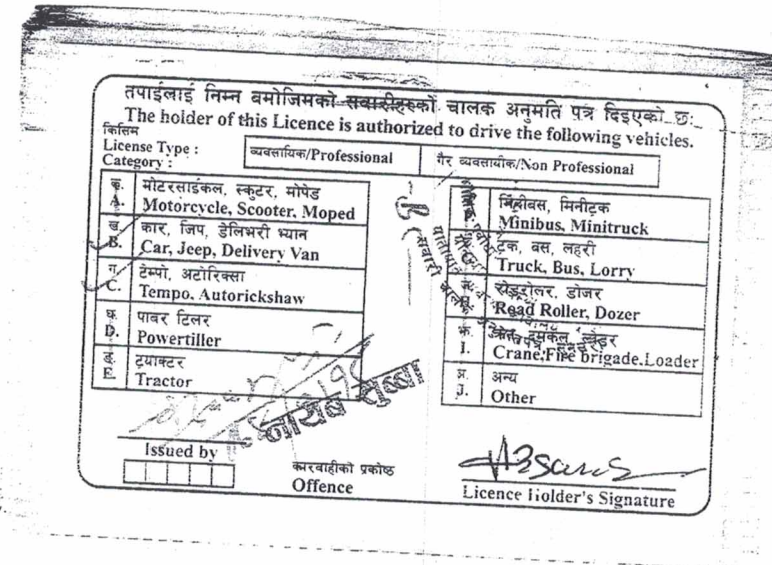 तपाईलाई निम्न बमोजिमको सवारीहरुको चालक अनुमति पत्र दिइएको छः
The holder of this Licence is authorized to drive the following vehicles.
किसिम
License Type :
Category :
व्यवसायिक/Professional
गैर व्यवसायीक/Non Professional
क. मोटरसाईकल, स्कुटर, मोपेड
A. Motorcycle, Scooter, Moped
ख. कार, जिप, डेलिभरी भ्यान
B. Car, Jeep, Delivery Van
ग. टेम्पो, अटोरिक्सा
C. Tempo, Autorickshaw
घ. पावर टिलर
D. Powertiller
ङ. ट्रयाक्टर
E. Tractor
मिनीबस, मिनीट्रक
Minibus, Minitruck
ट्रक, बस, लहरी
Truck, Bus, Lorry
रोडरोलर, डोजर
Road Roller, Dozer
क्रेन, दमकल, लोडर
I. Crane,Fire brigade.Loader
ञ. अन्य
J. Other
नायब सुब्बा
Issued by
कारवाहीको प्रकोष्ठ
Offence
Licence Holder's Signature